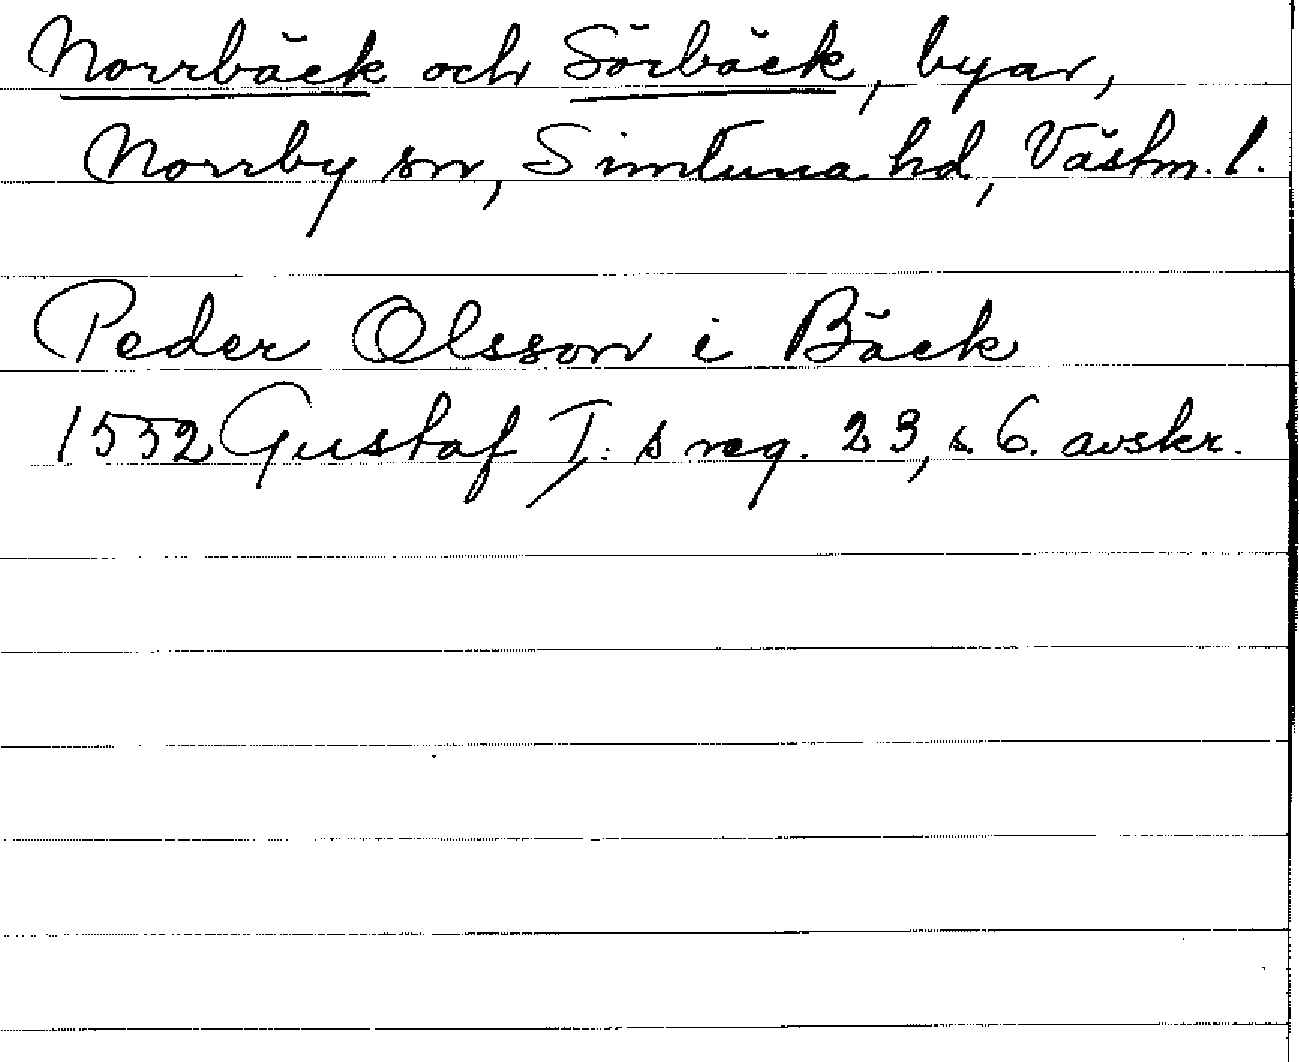 Norrbäck och Sörbäck, byar,
Norrby sn, Simtuna hd, Västm. l.
Peder Olsson i Bäck
1552 Gustaf I:s reg. 23, s. 6. avskr.